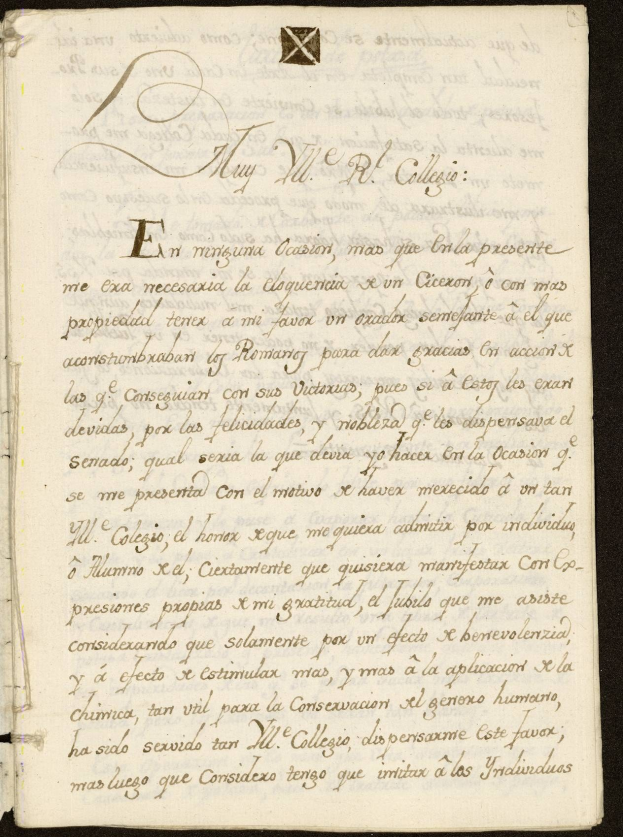 Muy Yll.e R.l Collegio:
En ninguna Ocasion, mas que en la presente
me era necesaria la eloquencia de un Ciceron, ô con mas
propiedad tener a mi favor un orador semejante â el que
aconstumbraban los Romanos para dar gracias en accion de
las q.e Conseguian con sus Victorias; pues si â estos les eran
devidas, por las felicidades, y nobleza q.e les dispensava el
Senado; qual seria la que devia yo hacer en la Ocasion q.e
se me presenta con el motivo de haver merecido â un tan
Yll.e Colegio, el honor de que me quiera admitir por individuo,
ô Alumno de el; Ciertamente que quisiera manifestar con Ex-
presiones propias de mi gratitud, el Jubilo que me asiste
considerando que solamente por un efecto de benevolenzia,
y á efecto de estimular mas, y mas â la aplicacion de la
chimica, tan util para la Conservacion del genero humano,
ha sido servido tan Yll.e Collegio dispensarme este favor;
mas luego que Considero tengo que imitar â los Yndividuos